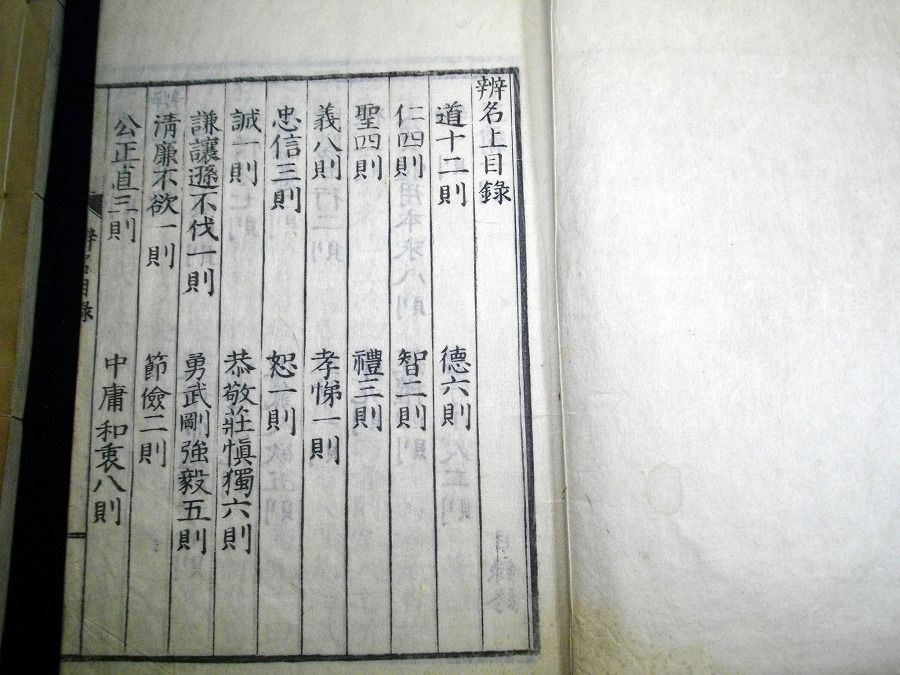 辨名上目錄
道十二則　德六則
仁四則　智二則
聖四則　禮三則
義八則　孝悌一則
忠信三則　恕一則
誠一則　恭敬莊愼獨六則
謙讓遜不伐一則　勇武剛強毅五則
淸廉不欲一則　節儉二則
公正直三則　中庸和衷八則
辨名目錄